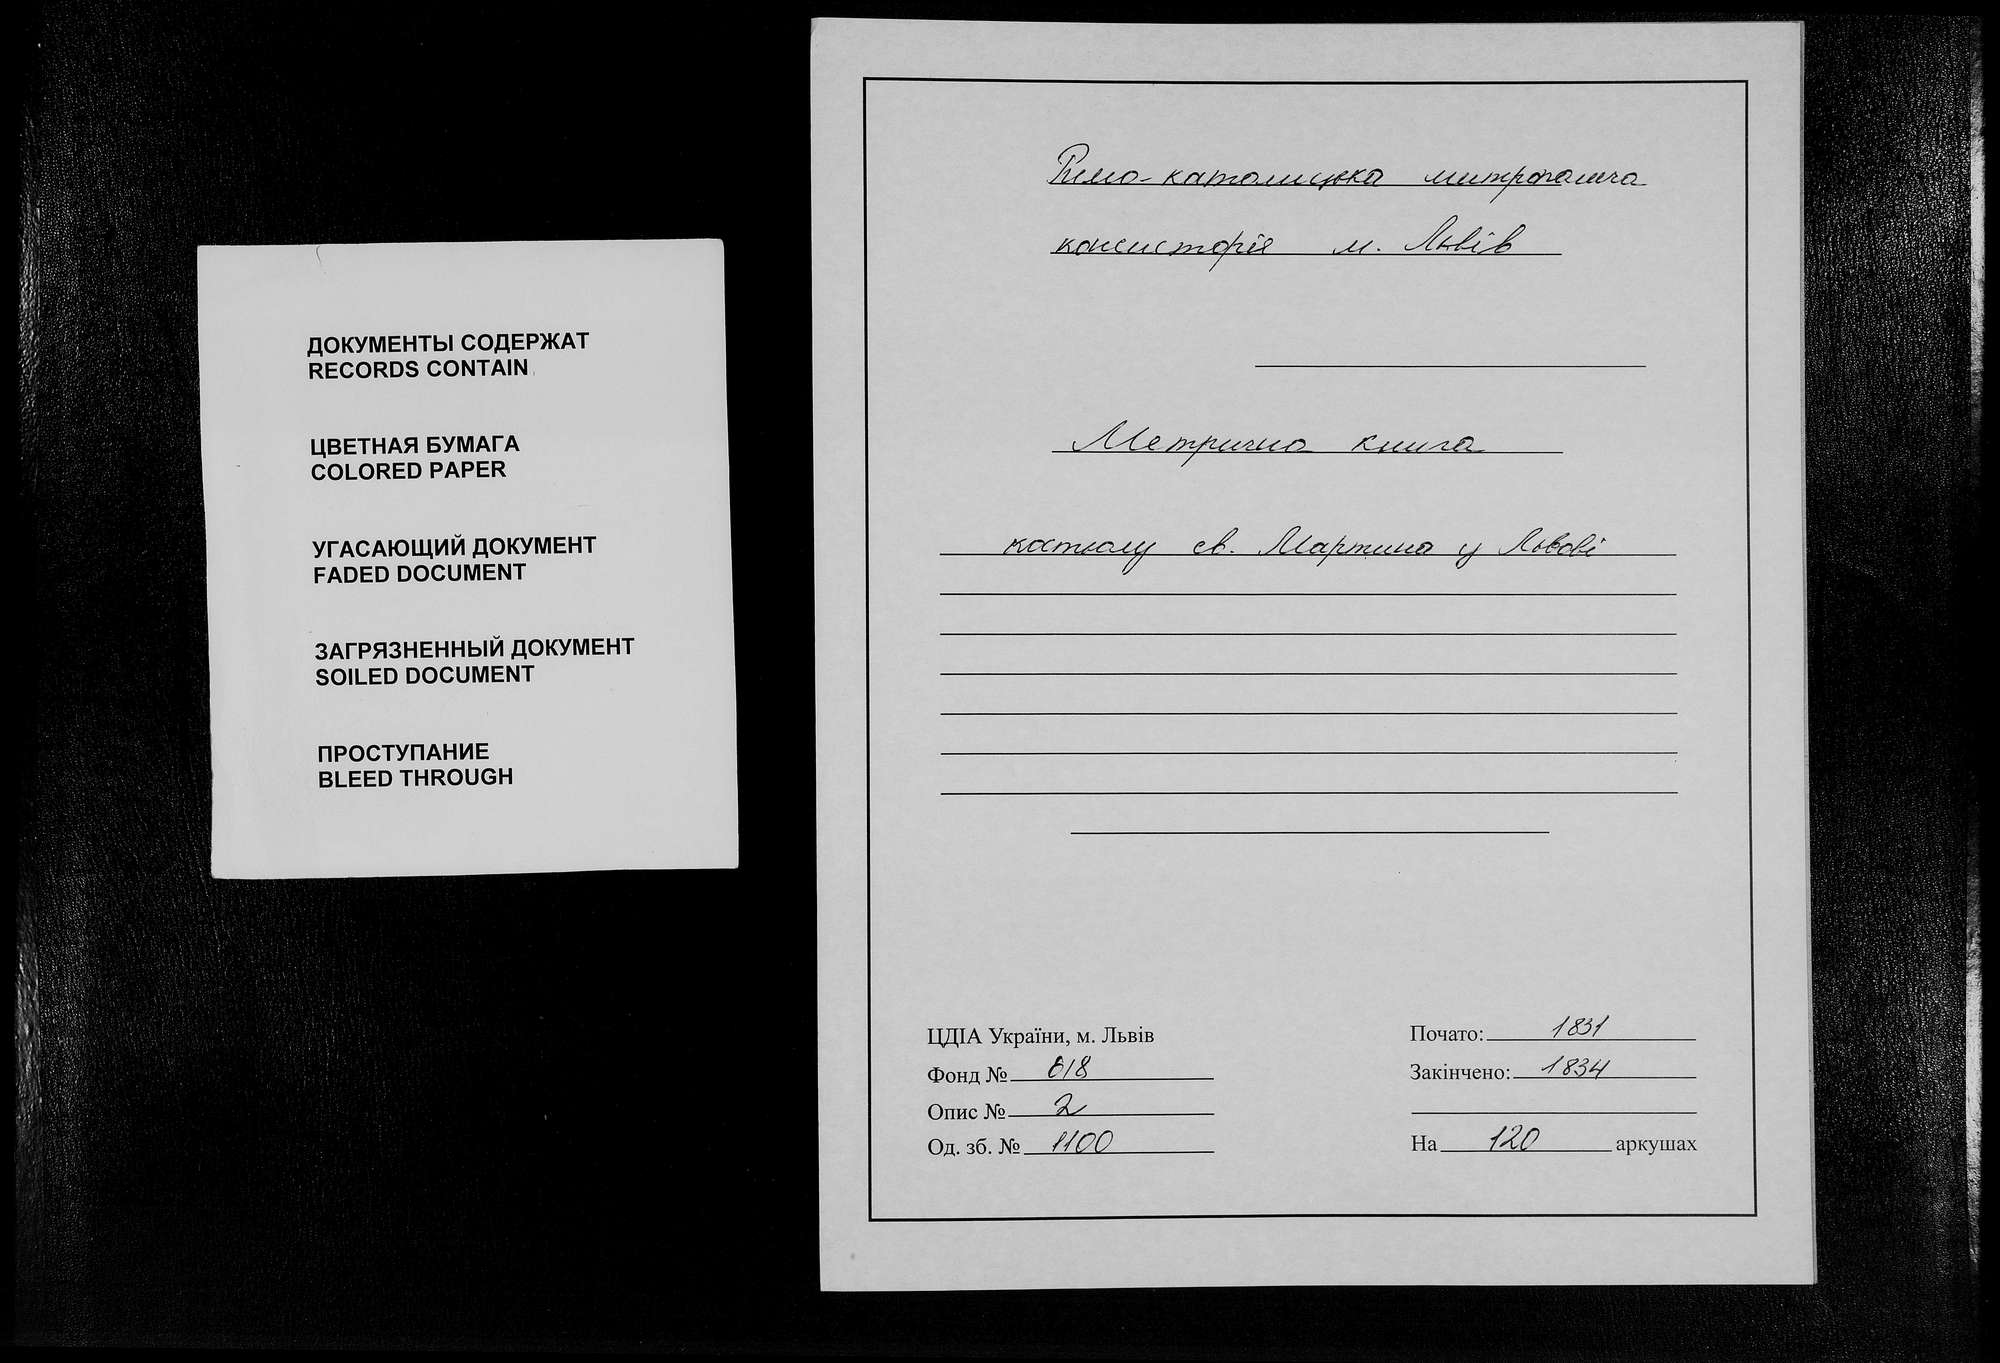 ДОКУМЕНТЫ СОДЕРЖАТ
RECORDS CONTAIN
ЦВЕТНАЯ БУМАГА
COLORED PAPER
УГАСАЮЩИЙ ДОКУМЕНТ
FADED DOCUMENT
ЗАГРЯЗНЕННЫЙ ДОКУМЕНТ
SOILED DOCUMENT
ПРОСТУПАНИЕ
BLEED THROUGH
Римо-католицька митрополича
консисторія м. Львів
Метрична книга
костьолу св. Мартина у Львові
ЦДІА України, м. Львів
Фонд № 618
Опис № 2
Од. зб. № 1100
Почато: 1831
Закінчено: 1834
На 120 аркушах